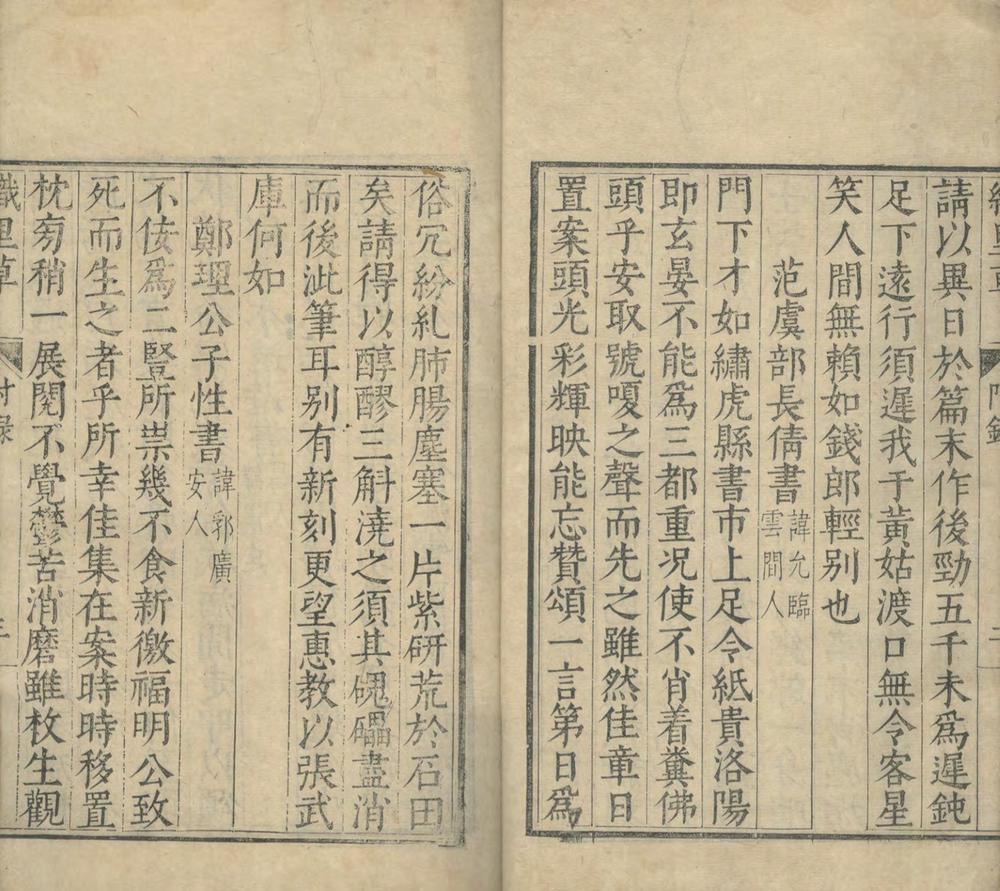 請以異日於篇末作後勁五千未爲遲鈍
足下遠行須遲我于黃姑渡口無令客星
笑人間無賴如錢郎輕别也
范虞部長倩書 諱允臨 雲間人
門下才如繡虎縣書市上足令紙貴洛陽
即玄晏不能爲三都重况使不肖着糞佛
頭乎安取號嗄之聲而先之雖然佳章日
置案頭光彩輝映能忘贊頌一言第日爲
俗冗紛糺肺腸塵塞一片紫硏荒於石田
矣請得以醇醪三斛澆之須其磈礧盡消
而後泚筆耳别有新刻更望惠教以張武
庫何如
鄭理公子性書 諱郭廣 安人
不佞爲二豎所祟幾不食新徼福明公致
死而生之者乎所幸佳集在案時時移置
枕旁稍一展閱不覺鬱苦消磨雖枚生觀
織里草 附錄